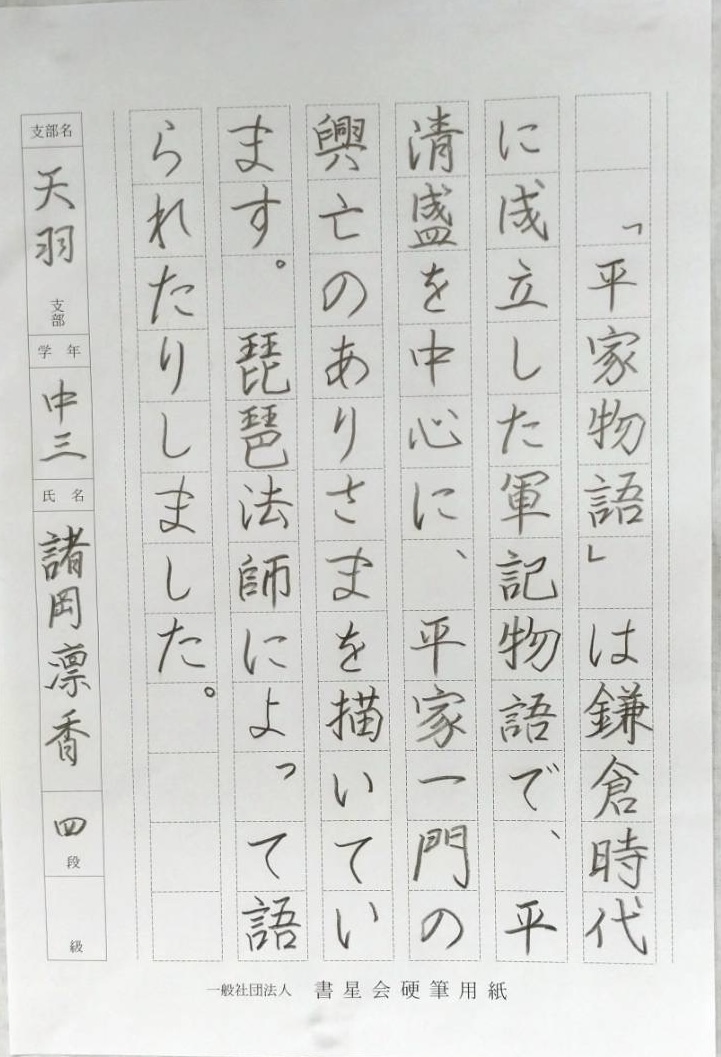 「平家物語」は鎌倉時代
に成立した軍記物語で、平
清盛を中心に、平家一門の
興亡のありさまを描いてい
ます。琵琶法師によって語
られたりしました。
支部名
天羽
支部
学年
中三
氏名
諸岡凛香
四段
級
一般社団法人 書星会硬筆用紙